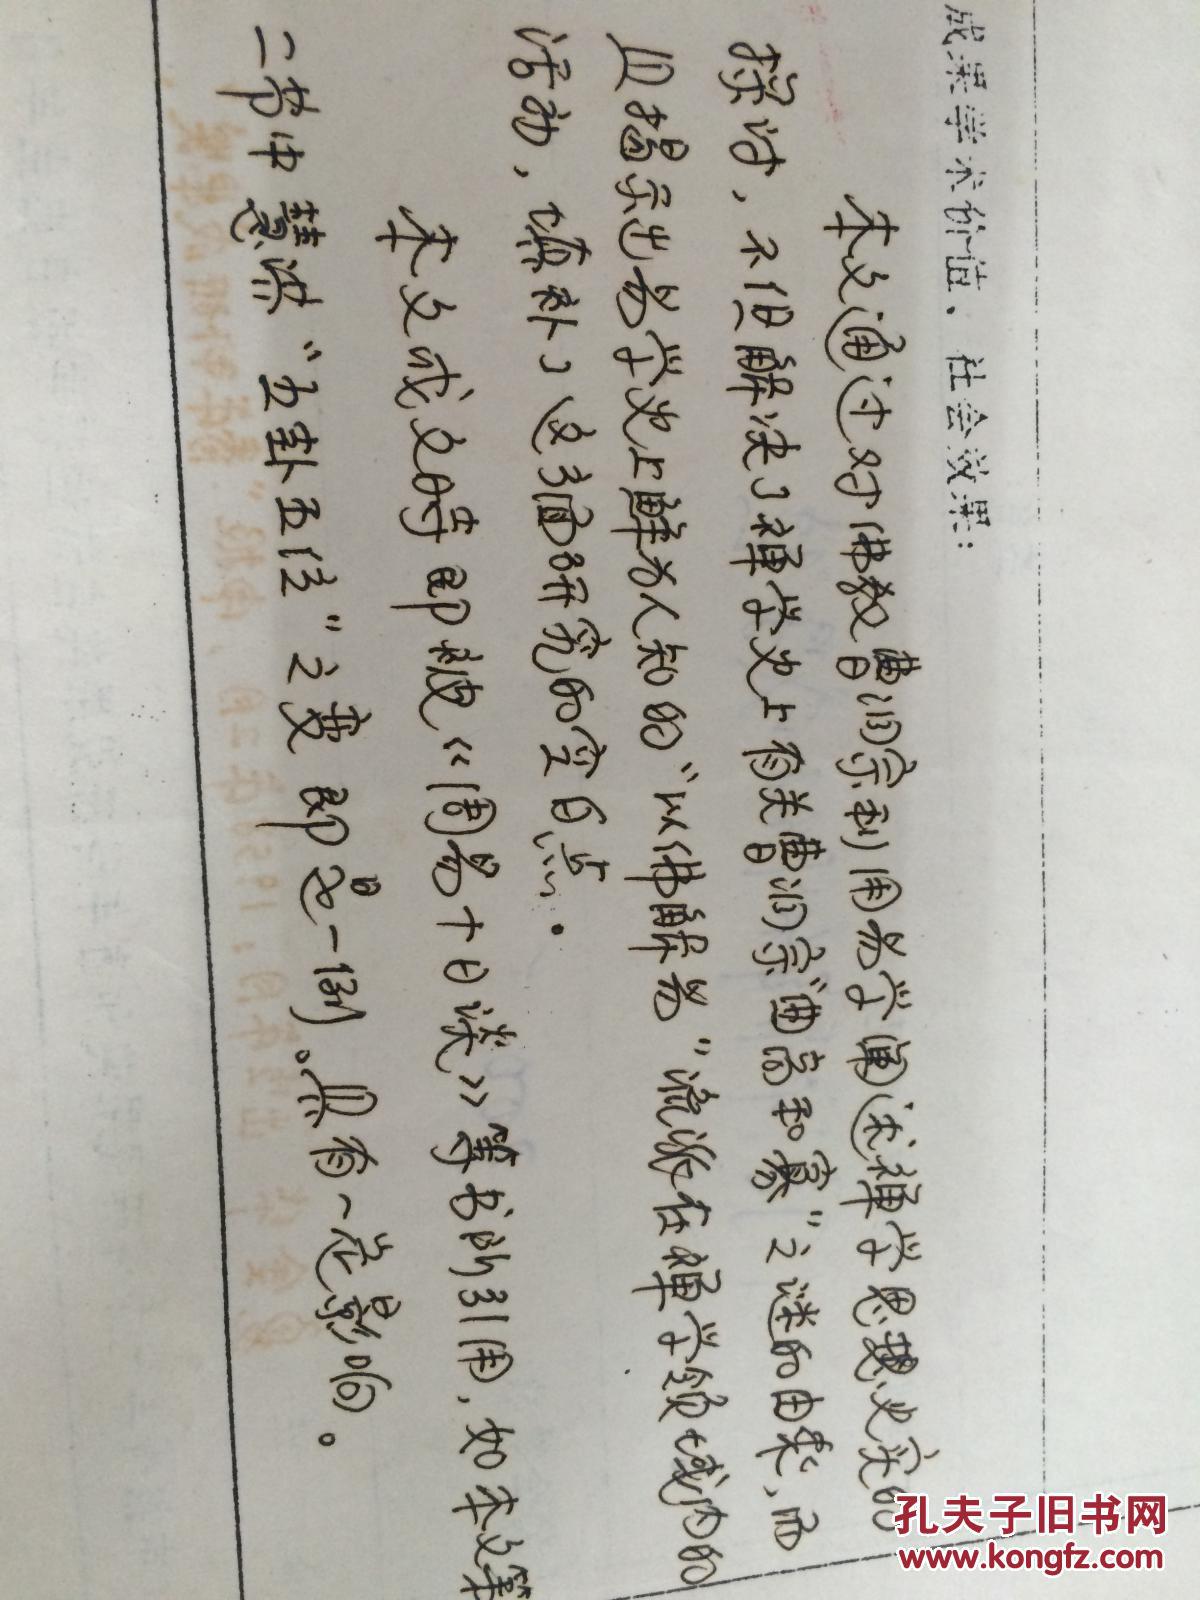 成果学术价值、社会效果：
本文通过对佛教曹洞宗利用易学阐述禅学思想史实的
探讨，不但解决了禅学史上有关曹洞宗“曲高和寡”之谜的由来，而
且揭示出易学史上鲜为人知的“以佛解易”流派在禅学领域内的
活动，填补了这方面研究的空白点。
本文成文时即被《周易十日谈》等书所引用，如本文第
二节中慧洪“五卦五位”之变即是一例。具有一定影响。
孔夫子旧书网
www.kongfz.com